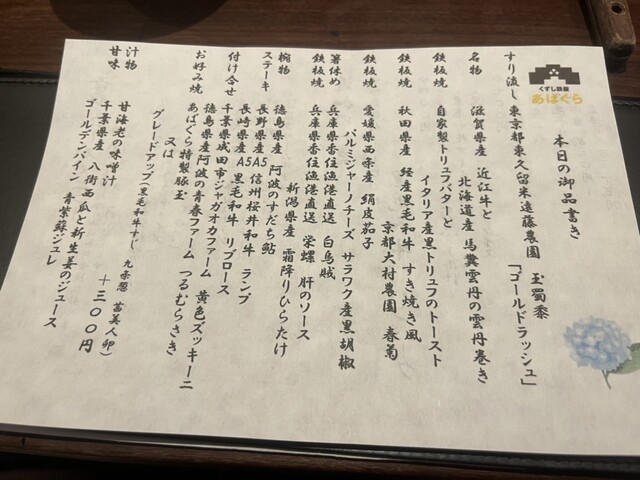 くずし鉄板
あばぐら
本日の御品書き
すり流し 東京都東久留米遠藤農園 玉蜀黍
「ゴールドラッシュ」
名物 滋賀県産 近江牛と
北海道産 馬糞雲丹の雲丹巻き
鉄板焼 自家製トリュフバターと
イタリア産黒トリュフのトースト
鉄板焼 秋田県産 経産黒毛和牛 すき焼き風
京都大村農園 春菊
鉄板焼 愛媛県西条産 絹皮茄子
パルミジャーノチーズ サラワク産黒胡椒
箸休め 兵庫県香住漁港直送 白烏賊
鉄板焼 兵庫県香住漁港直送 栄螺 肝のソース
新潟県産 霜降りひらたけ
椀物 徳島県産 阿波のすだち鮎
ステーキ 長野県産A5 信州桜井和牛 ランプ
長崎県産A5 黒毛和牛 リブロース
付け合せ 千葉県成田市ジャガオカファーム 黄色ズッキーニ
徳島県産阿波の青春ファーム つるむらさき
お好み焼 あばぐら特製豚玉
又は
グレードアップ(黒毛和牛すじ 九条葱 苗美人卵) +三〇〇円
汁物 甘海老の味噌汁
甘味 千葉県産 八街西瓜と新生姜のジュース
ゴールデンパイン 青紫蘇ジュレ